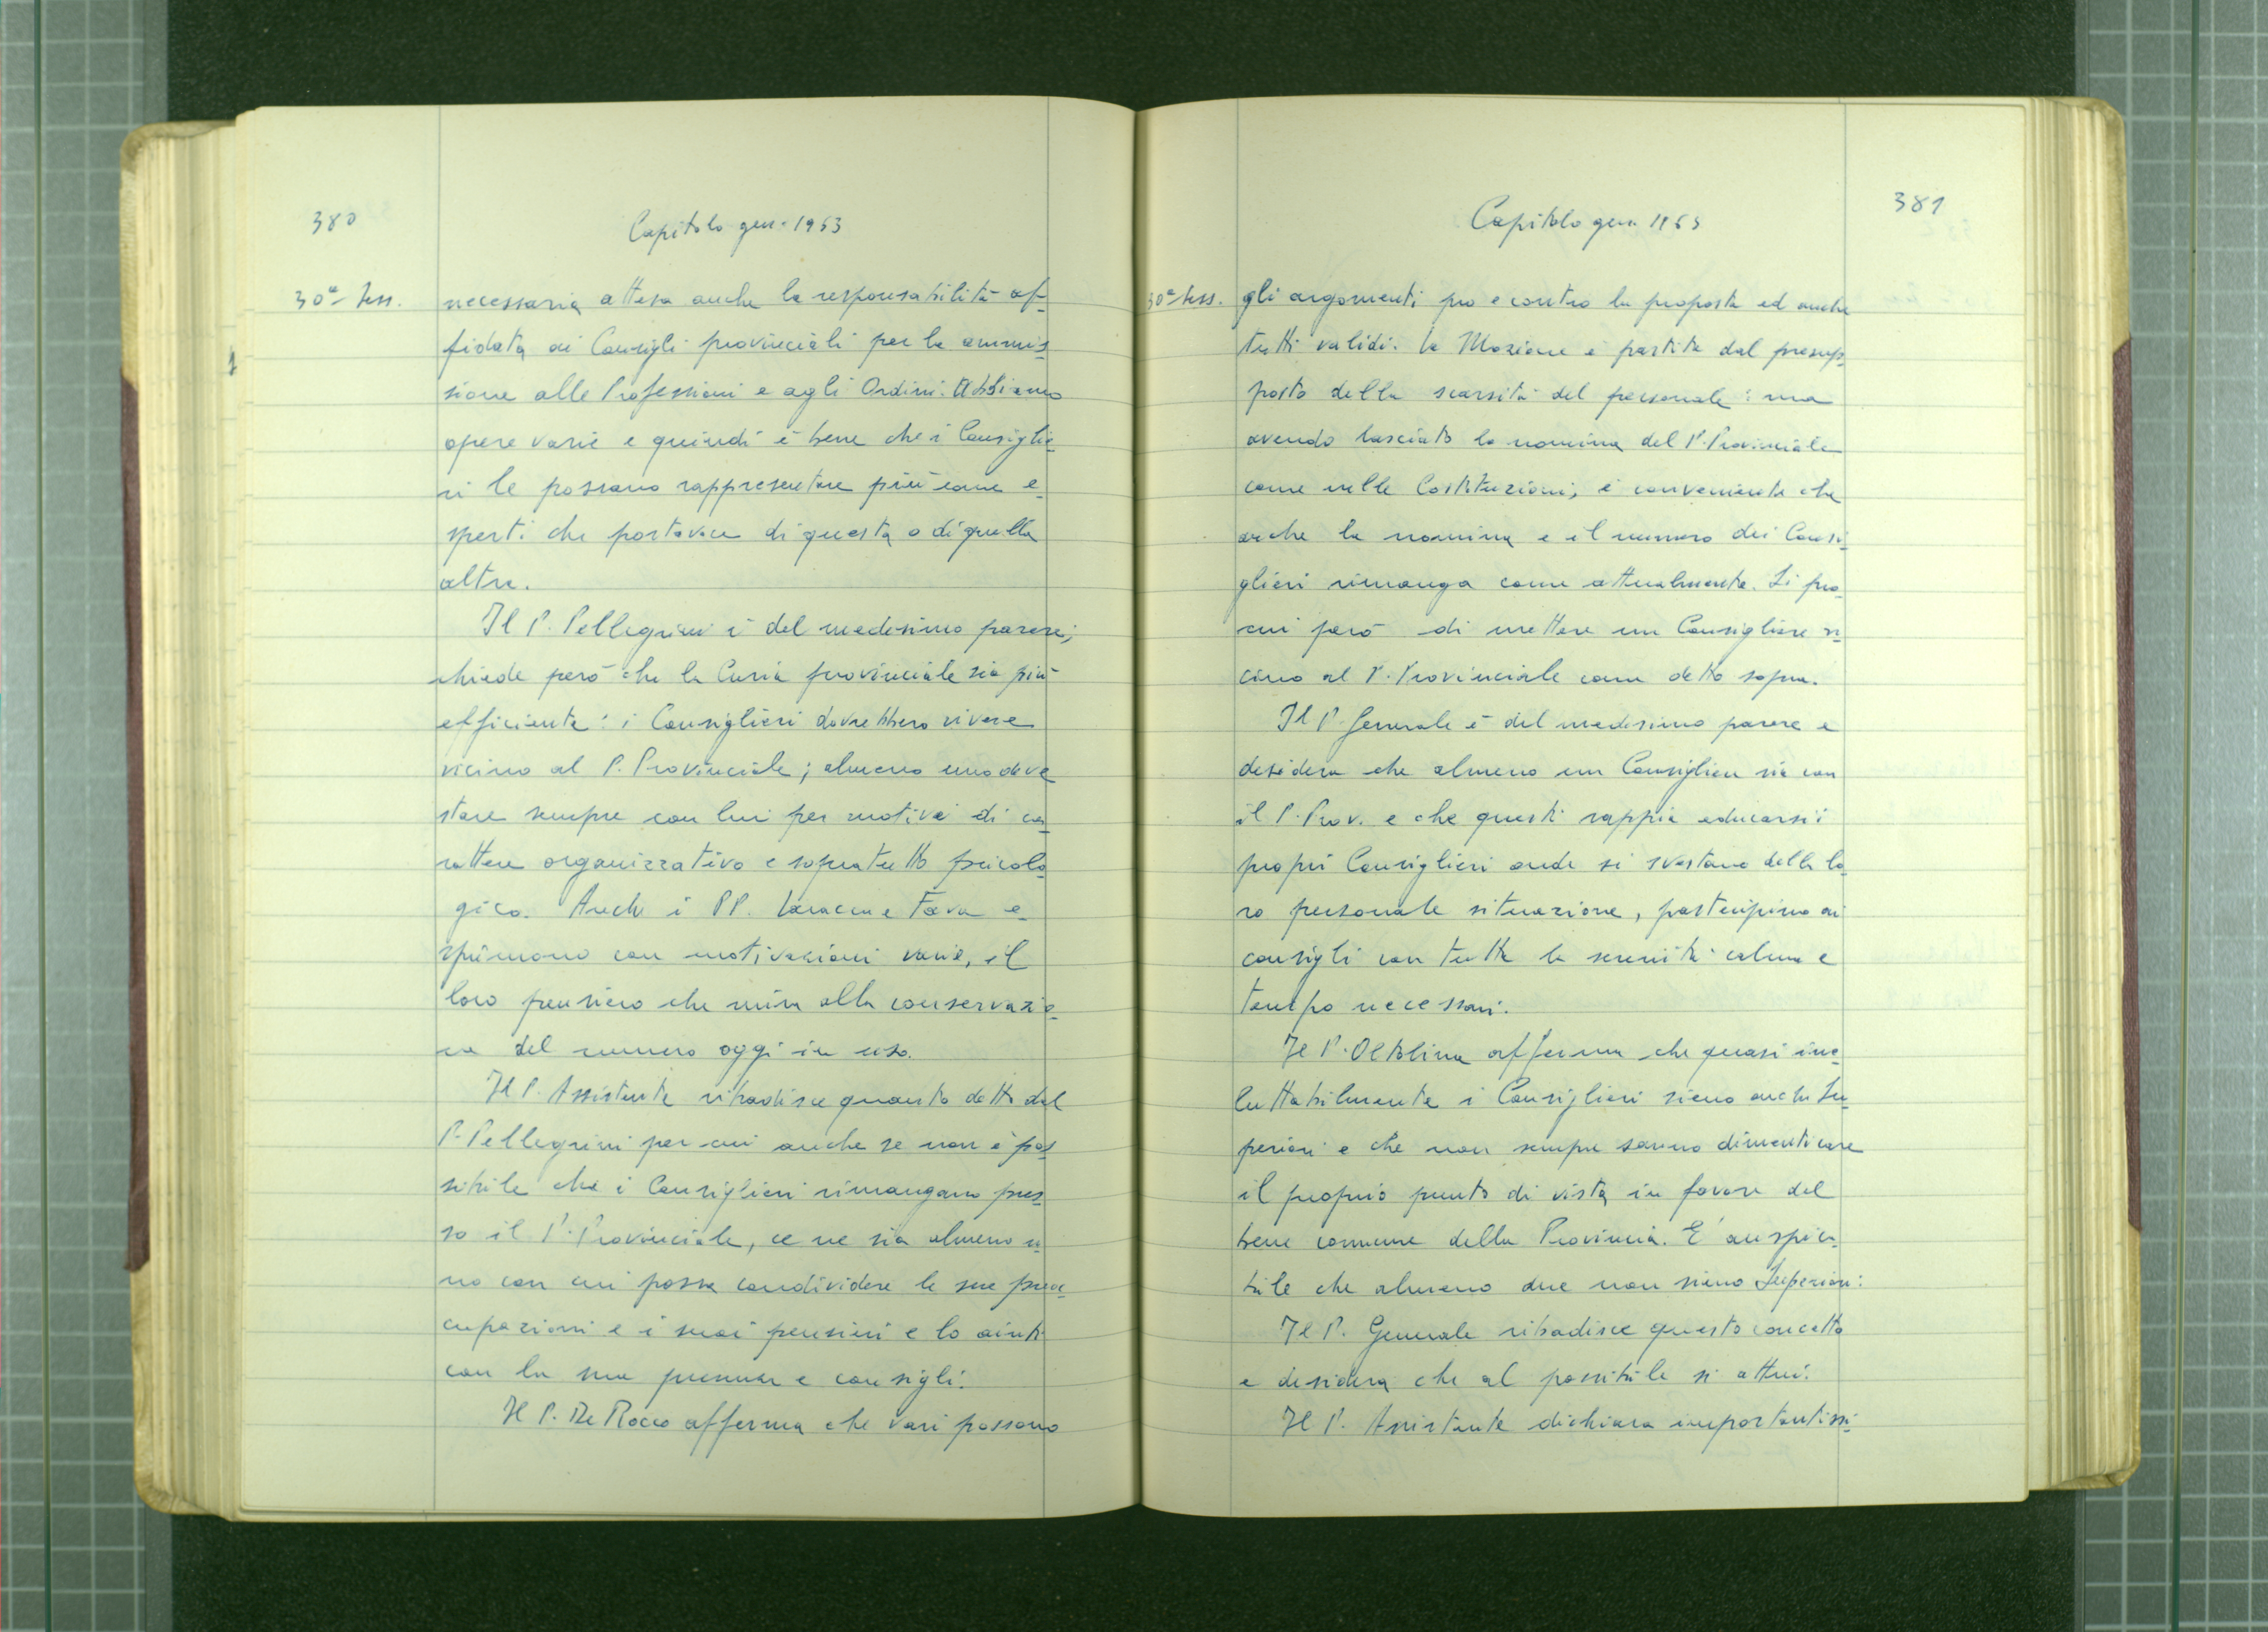 380
Capitolo gen. 1963
30ª Sess.
necessaria attesa anche la responsabilità af-
fidata ai Consigli provinciali per la ammis-
sione alle Professioni e agli Ordini. Abbiamo
opere varie e quindi è bene che i Consiglie-
ri le possano rappresentare più come e-
sperti che portavoce di questa o di quella
altra.
Il P. Pellegrini è del medesimo parere;
chiede però che la Curia provinciale sia più
efficiente: i Consiglieri dovrebbero vivere
vicino al P. Provinciale; almeno uno deve
stare sempre con lui per motivi di ca-
rattere organizzativo e sopratutto psicolo-
gico. Anche i PP. e Fava e-
sprimono con motivazioni varie, il
loro pensiero che mira alla conservazio-
ne del numero oggi in uso.
Il P. Assistente ribadisce quanto detto dal
P. Pellegrini per cui anche se non è pos-
sibile che i Consiglieri rimangano pres-
so il P. Provinciale, ce ne sia almeno u-
no con cui possa condividere le sue preoc-
cupazioni e i suoi pensieri e lo aiuti
con la sua presenza e consigli.
Il P. De Rocco afferma che vari possono
381
Capitolo gen. 1963
30ª Sess.
gli argomenti pro e contro la proposta ed anche
tutti validi. La Mozione è partita dal presup-
posto della scarsità del personale: ma
avendo lasciato la nomina del P. Provinciale
come nelle Costituzioni, è conveniente che
anche la nomina e il numero dei Consi-
glieri rimanga come attualmente. Si pro-
curi però di mettere un Consigliere vi-
cino al P. Provinciale come detto sopra.
Il P. Generale è del medesimo parere e
desidera che almeno un Consigliere sia con
il P. Prov. e che questi sappia educarsi i
propri Consiglieri onde si svestano della lo-
ro personale situazione, partecipino ai
consigli con tutta la serenità calma e
tempo necessari.
Il P. Oltolina afferma che quasi ine-
luttabilmente i Consiglieri siano anche Su-
periori e che non sempre sanno dimenticare
il proprio punto di vista in favore del
bene comune della Provincia. E' auspica-
bile che almeno due non siano Superiori.
Il P. Generale ribadisce questo concetto
e desidera che al possibile si attui.
Il P. Assistente dichiara importantissi-